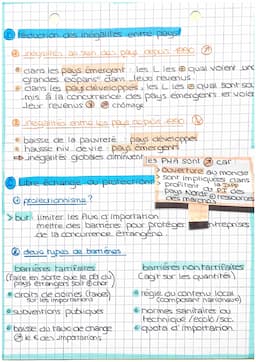 réduction des inégalités entre pays?
inégalités au sein des pays depuis 1990
dans les pays émergent: les L les + quali voient une
grandes expans° dans leur revenus.
dans les pays développés, les L les - quali sont sou
mis à la concurrence des pays émergents et voient
leur revenus chômage
inégalités entre les pays depuis 1990
baisse de la pauvreté pays développés
hausse niv. de vie pays émergents
inégalités globales diminuent
les PMA sont car
Ouverture au monde
sont impliqués dans
profitent
Pays Nord ressources
des marchés
Libre échange ou protection?
① protectionnisme?
> but limiter les flux d'importation
mettre des barrières pour protéger entreprises
de la concurrence étrangère.
② deux types de barrières
barrières tarifaires
(faire en sorte que le pd du
pays étrangers soit + cher)
droits de douines (taxes)
sur les importations
subventions publiques
baisse du taux de change
le € des importations
barrières non tarifaires
(agit sur les quantités)
règle du contenu local
(composant nationaux)
normes sanitaires ou
technique / écolo / soc.
quota d'importation